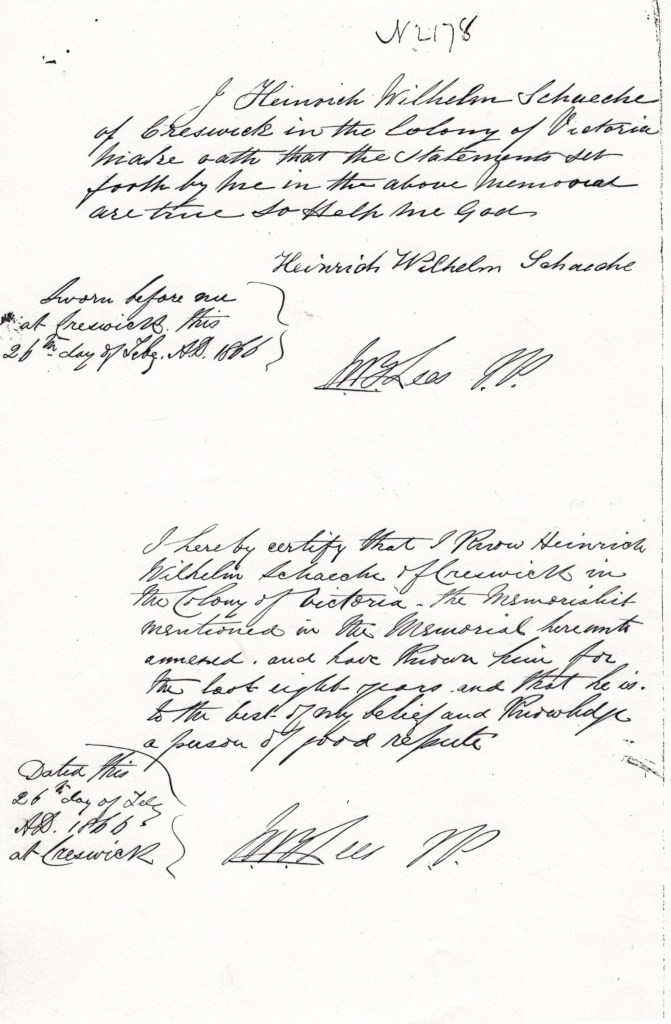 N 2178
I Heinrich Wilhelm Schaeche
of Creswick in the Colony of Victoria
make oath that the statements set
forth by me in the above memorial
are true So Help me God
Heinrich Wilhelm Schaeche
Sworn before me
at Creswick this
26th day of Feby. A.D. 1866
Lees J.P.
I hereby certify that I know Heinrich
Wilhelm Schaeche of Creswick in
the Colony of Victoria - the Memorialist
mentioned in the Memorial hereunto
annexed. and have known him for
the last eight years. and that he is.
to the best of my belief and knowledge
a person of good repute
Dated this
26th day of Feby
A.D. 1866
at Creswick
Lees J.P.